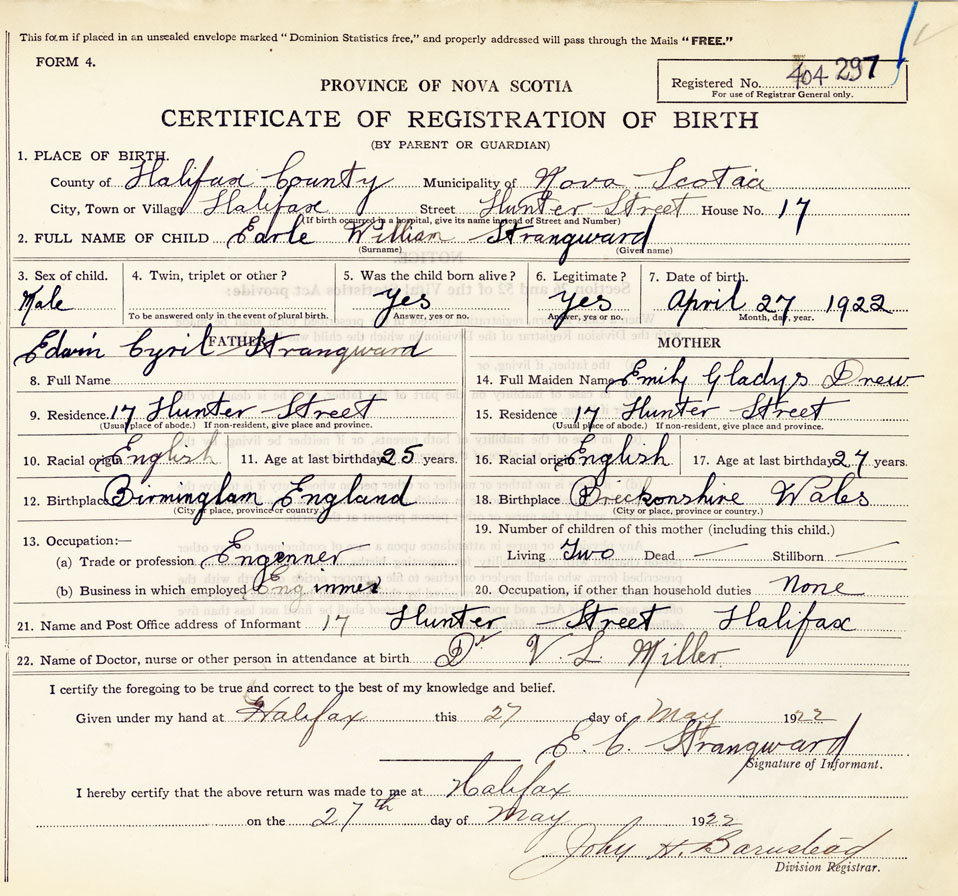 This form if placed in an unsealed envelope marked "Dominion Statistics free," and properly addressed will pass through the Mails "FREE."
FORM 4.
Registered No. 404297
For use of Registrar General only.
PROVINCE OF NOVA SCOTIA
CERTIFICATE OF REGISTRATION OF BIRTH
(BY PARENT OR GUARDIAN)
1. PLACE OF BIRTH.
County of Halifax County Municipality of Nova Scotaa
City, Town or Village Halifax Street Hunter Street House No. 17
(If birth occurred in a hospital, give its name instead of Street and Number)
2. FULL NAME OF CHILD Earle William Strangward
(Surname) (Given name)
3. Sex of child. 4. Twin, triplet or other? 5. Was the child born alive? 6. Legitimate? 7. Date of birth.
Male yes Yes April 27 1922
To be answered only in the event of plural birth. Answer, yes or no. Answer, yes or no. Month, day, year.
FATHER
Edwin Cyril Strangward
8. Full Name
9. Residence. 17 Hunter Street
(Usual place of abode.) If non-resident, give place and province.
10. Racial origin English 11. Age at last birthday 25 years.
12. Birthplace Birmingham England
(City or place, province or country.)
13. Occupation:—
(a) Trade or profession Enginner
(b) Business in which employed Enginner
MOTHER
14. Full Maiden Name Emily Gladys Drew
15. Residence 17 Hunter Street
(Usual place of abode.) If non-resident, give place and province.
16. Racial origin English 17. Age at last birthday 27 years.
18. Birthplace Breckonshire Wales
(City or place, province or country.)
19. Number of children of this mother (including this child.)
Living Two Dead — Stillborn —
20. Occupation, if other than household duties None
21. Name and Post Office address of Informant 17 Hunter Street Halifax
22. Name of Doctor, nurse or other person in attendance at birth Dr V. L. Miller
I certify the foregoing to be true and correct to the best of my knowledge and belief.
Given under my hand at Halifax this 27 day of May 1922
E. C. Strangward
Signature of Informant.
I hereby certify that the above return was made to me at Halifax
on the 27th day of May 1922
John H. Barnstead
Division Registrar.